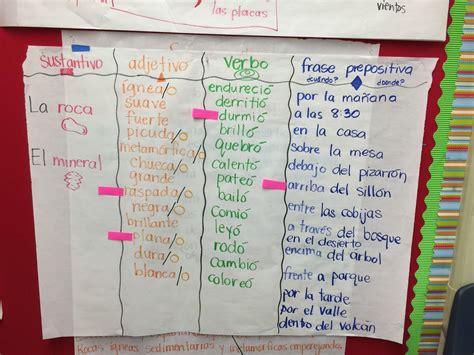 las placas
vientos
sustantivo
La roca
El mineral
adjetivo
ígnea/o
suave
fuerte
picuda/o
metamórfica/o
chueca/o
grande
raspada/o
negra/o
brillante
plana/o
dura/o
blanca/o
verbo
endureció
derritió
durmió
brilló
quebró
calentó
pateó
bailó
comió
leyó
rodó
cambió
coloreó
frase prepositiva
¿cuándo? ¿dónde?
por la mañana
a las 8:30
en la casa
sobre la mesa
debajo del pizarrón
arriba del sillón
entre las cobijas
a través del bosque
en el desierto
encima del árbol
frente a parque
por la tarde
por el valle
dentro del volcán
Rocas ígneas sedimentarias y metamórficas